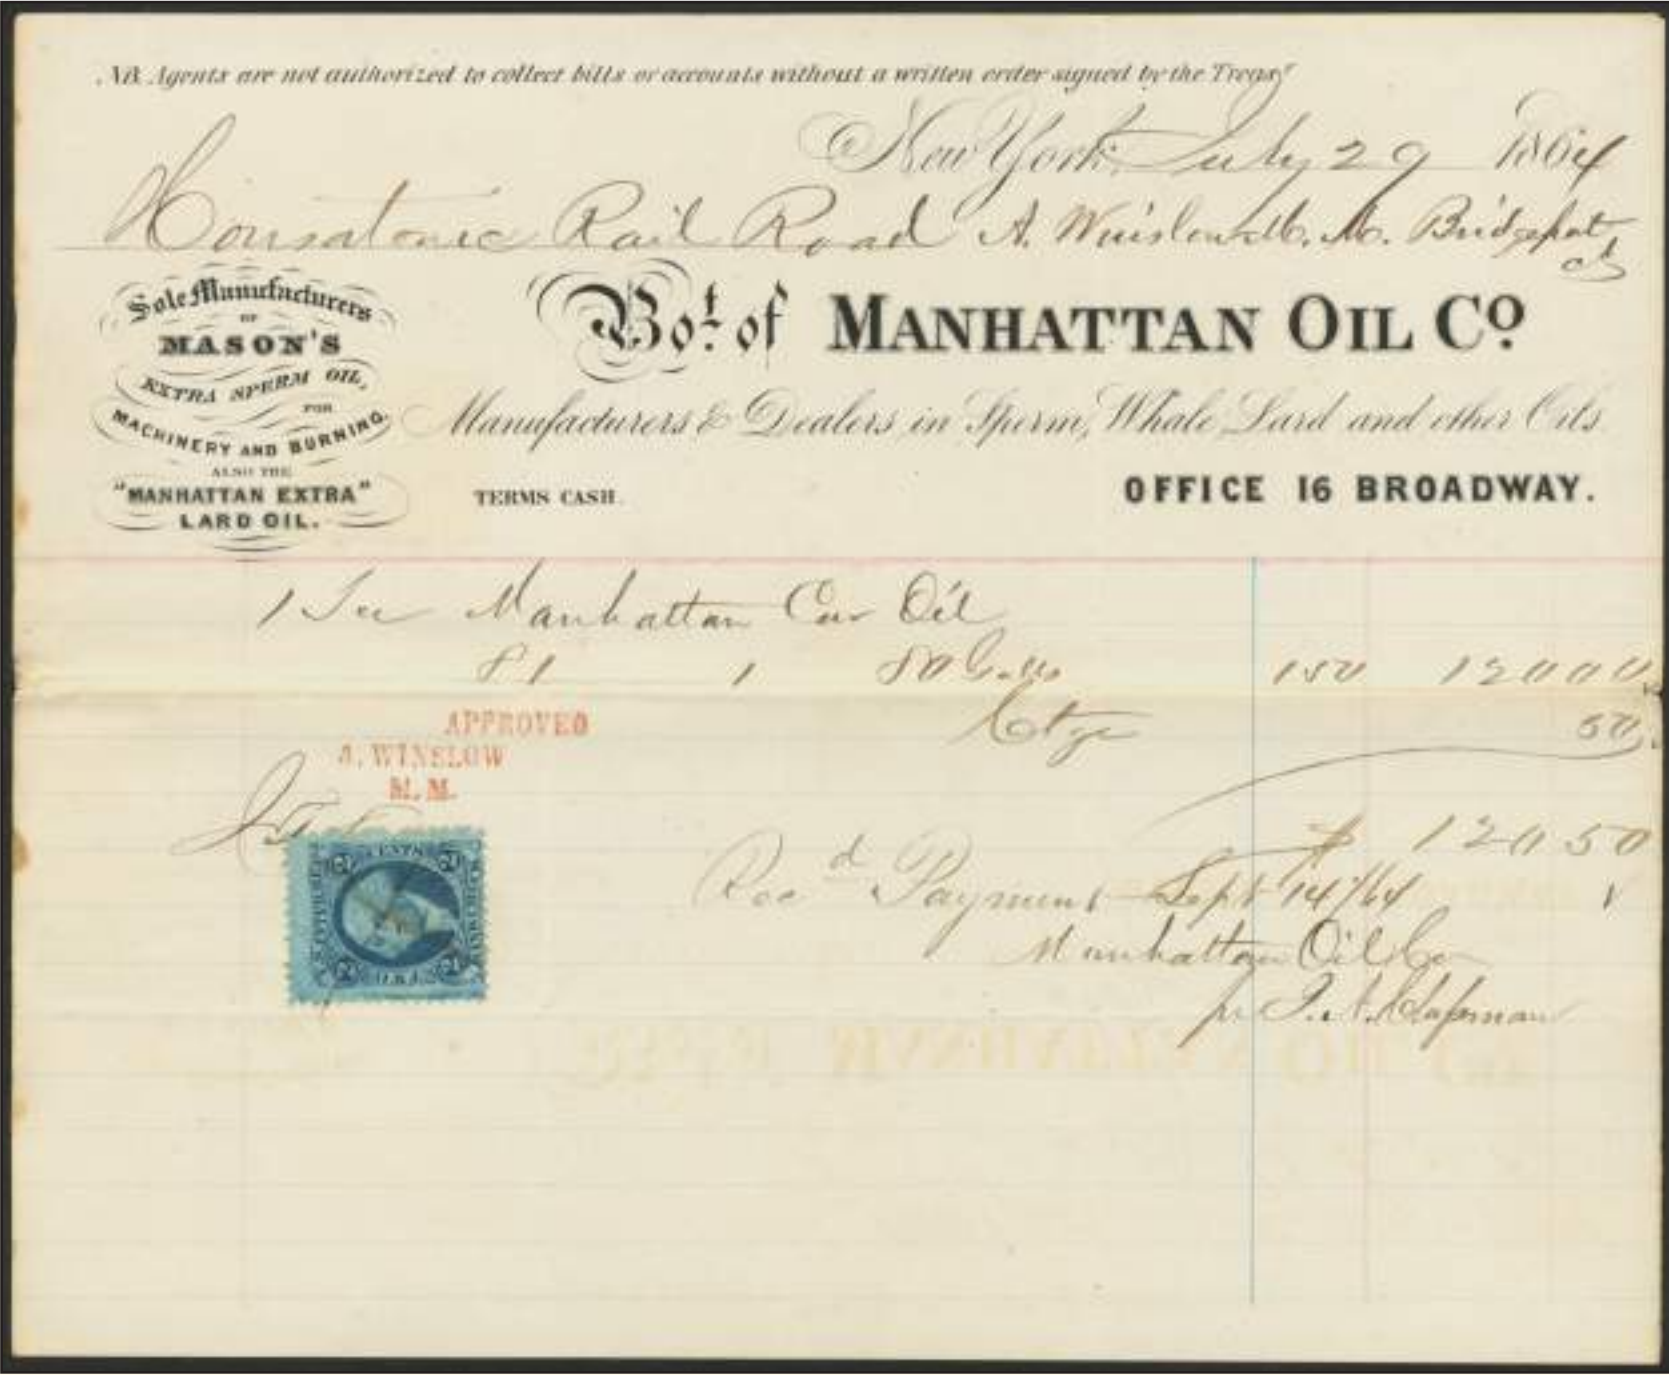 NB. Agents are not authorized to collect bills or accounts without a written order signed by the Treasr
New York, July 29 1864
Housatonic Rail Road A. Winslow M. M. Bridgeport
Ct
Sole Manufacturers
OF
MASON'S
EXTRA SPERM OIL,
FOR
MACHINERY AND BURNING.
ALSO THE
"MANHATTAN EXTRA"
LARD OIL.
Bot. of MANHATTAN OIL Co.
Manufacturers & Dealers in Sperm, Whale, Lard and other Oils.
TERMS CASH.
OFFICE 16 BROADWAY.
1 Manhattan Car Oil
81 1 80 Galls 150 120 00
Ctge 50
APPROVED
A. WINSLOW
M. M.
$ 120 50
Recd Payment Sept 14/64
Manhattan Oil Co
pr Chapman
2 CENTS 2
U.S. INTER. REV.
2 U.S. 2